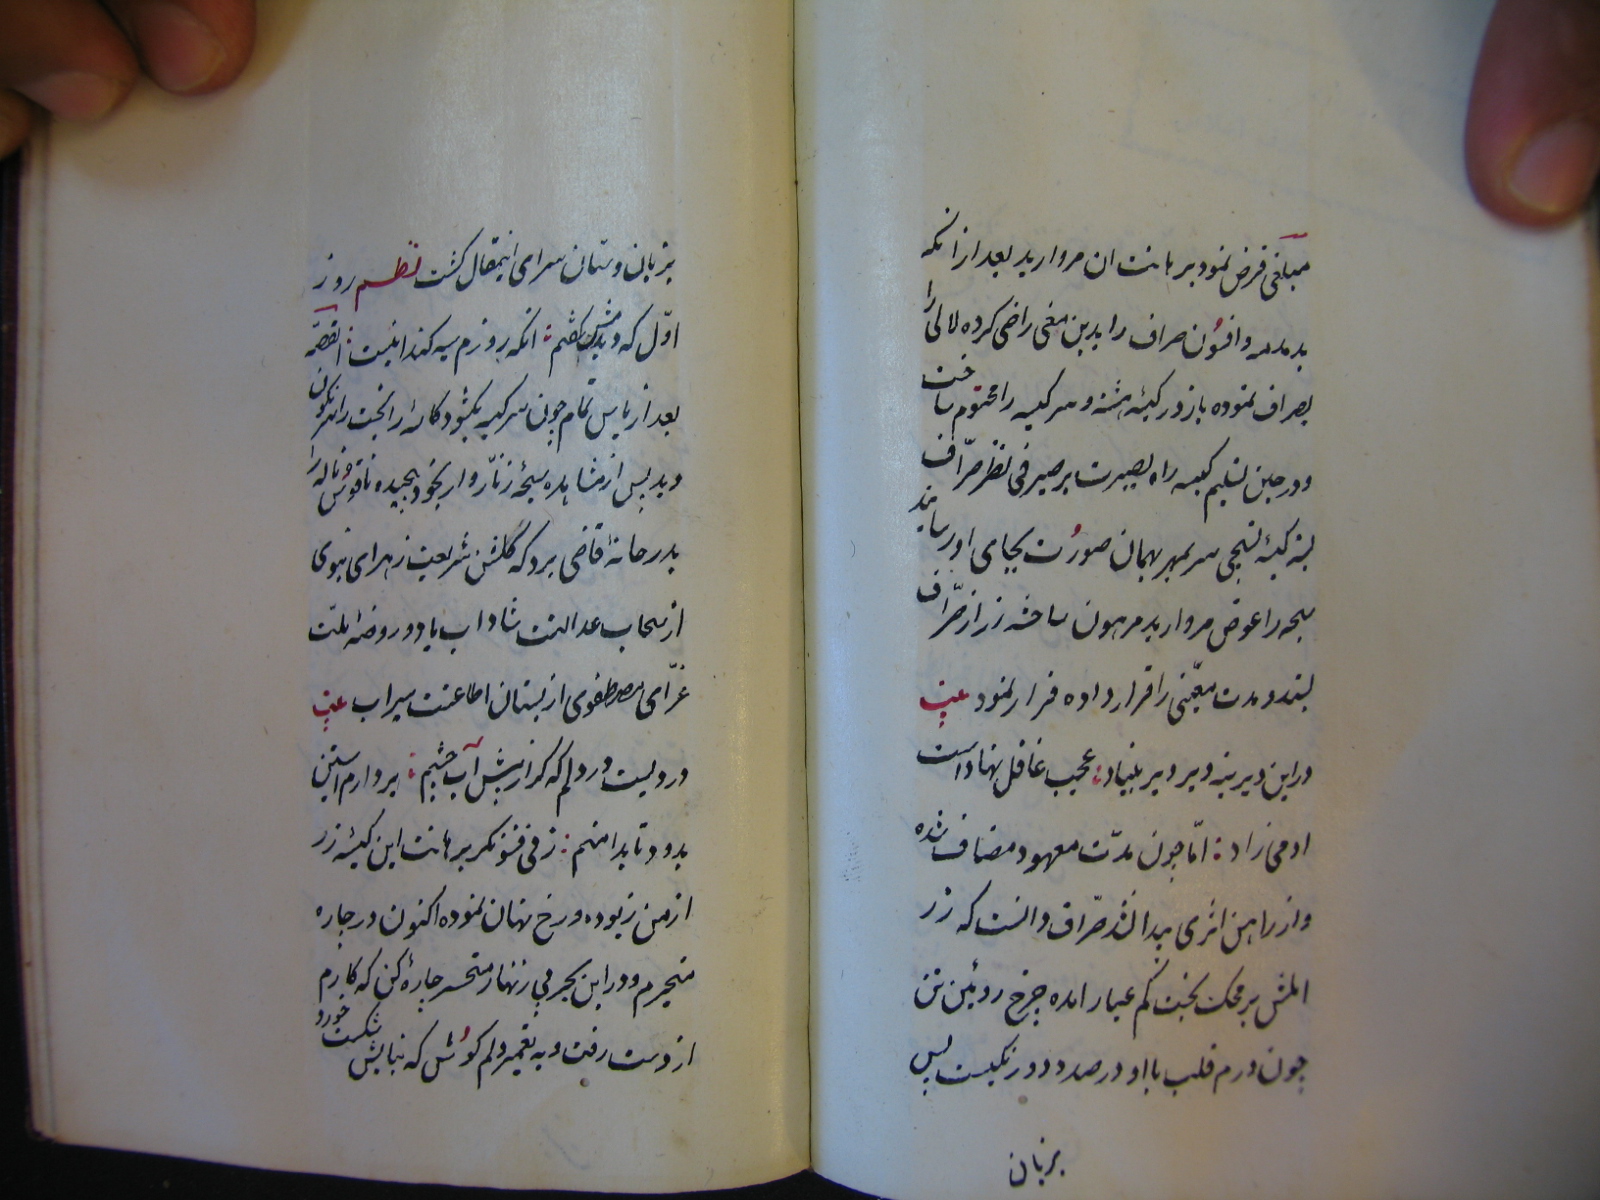 مبلغی قرض نمود برهانت ان مروارید بعد از انکه
بدمدمه و افسون صراف را بدین معنی راضی کرده لالی را
بصراف نموده باز در کیسه هشته و سر کیسه را مختوم ساخت
و در حین تسلیم کیسه راه بصیرت بر صیرفی نظر صرّاف
بسته کیسهٔ سر بمهر بهمان صورت بجای او رسانید
سبحه را عوض مروارید مرهون ساخته زر از صرّاف
بستد و مدت معیّنی را قرار داده فرار نمود بیت
دراین دیرینه دیر دیر بنیاد عجب غافل نهاد است
ادمی زاد امّا چون مدّت معهود مضاف شده
و از راهن اثری پیدا نشد صرّاف دانست که زر
املش بر محک بخت کم عیار امده چرخ روئین تن
چون درم قلب با او در صدد دو رنگیست پس
بزبان
بزبان دستان سرای این مقال کشت نظم روز
اوّل که دیدمش گفتم انکه روزم سیه کند اینست القصّه
بعد از یاس تمام چون سر کیسه بکشود کاسهٔ بخت را سرنکون
دید پس از مشاهده سبحه زنّار وار بخود پیچیده ناقوس ناله را
بدر خانهٔ قاضی برد که گلشن شریعت زهرای نبوی
از سحاب عدالتت شاداب باد و روضهٔ ملت
غرّای مصطفوی از بستان اطاعتت سیراب بیت
دردیست در دلم که گر از پیش آب چشم بردارم استین
برود تا بدامنم زرقی فسونکر برهانت این کیسه زر
از من ربوده و رخ نهان نموده اکنون در چاره
متحیرم و در این بحر بی زنهار متحسر چارهٔ کن که کارم
از دست رفت و به تعمیر دلم کوش که بنایش شکست خورد